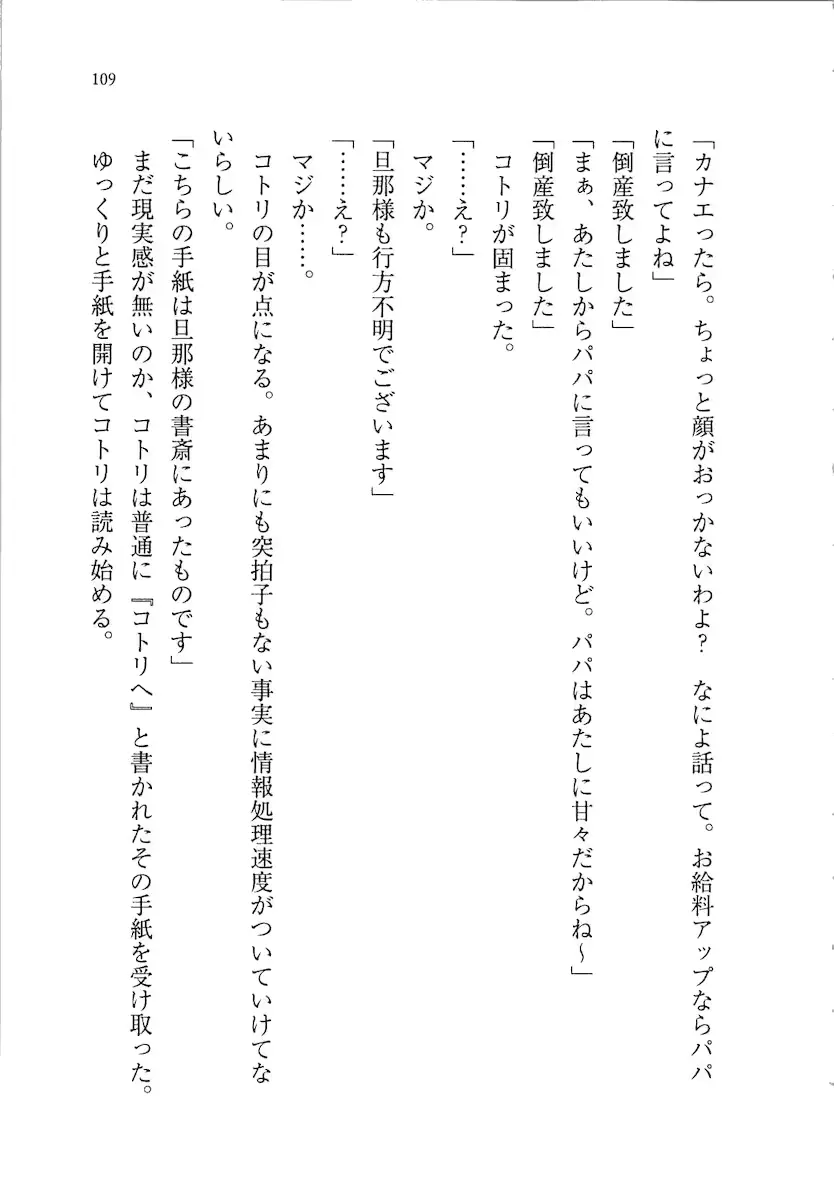 109
「カナエったら。ちょっと顔がおっかないわよ？　なによ話って。お給料アップならパパ
に言ってよね」
「倒産致しました」
「まぁ、あたしからパパに言ってもいいけど。パパはあたしに甘々だからね〜」
「倒産致しました」
　コトリが固まった。
「……え？」
　マジか。
「旦那様も行方不明でございます」
「……え？」
　マジか……。
　コトリの目が点になる。あまりにも突拍子もない事実に情報処理速度がついていけてな
いらしい。
「こちらの手紙は旦那様の書斎にあったものです」
　まだ現実感が無いのか、コトリは普通に『コトリへ』と書かれたその手紙を受け取った。
　ゆっくりと手紙を開けてコトリは読み始める。